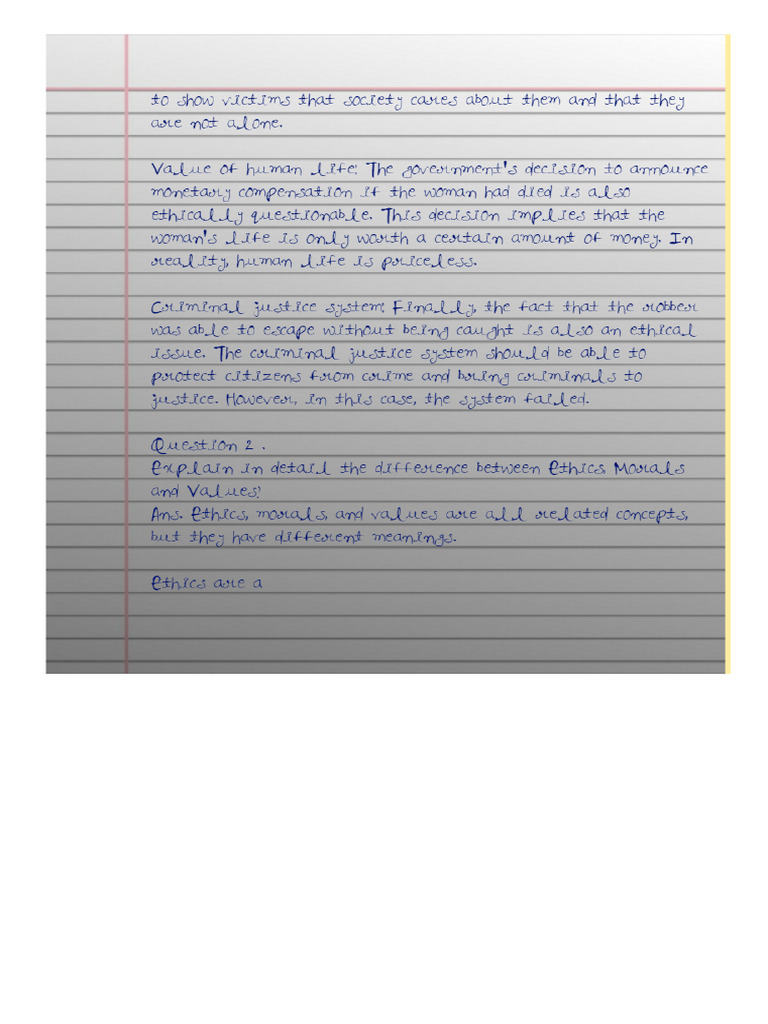 to show victims that society cares about them and that they
are not alone.
Value of human life: The government's decision to announce
monetary compensation if the woman had died is also
ethically questionable. This decision implies that the
woman's life is only worth a certain amount of money. In
reality, human life is priceless.
Criminal justice system: Finally, the fact that the robber
was able to escape without being caught is also an ethical
issue. The criminal justice system should be able to
protect citizens from crime and bring criminals to
justice. However, in this case, the system failed.
Question 2 .
Explain in detail the difference between Ethics, Morals
and Values?
Ans. Ethics, morals, and values are all related concepts,
but they have different meanings.
Ethics are a